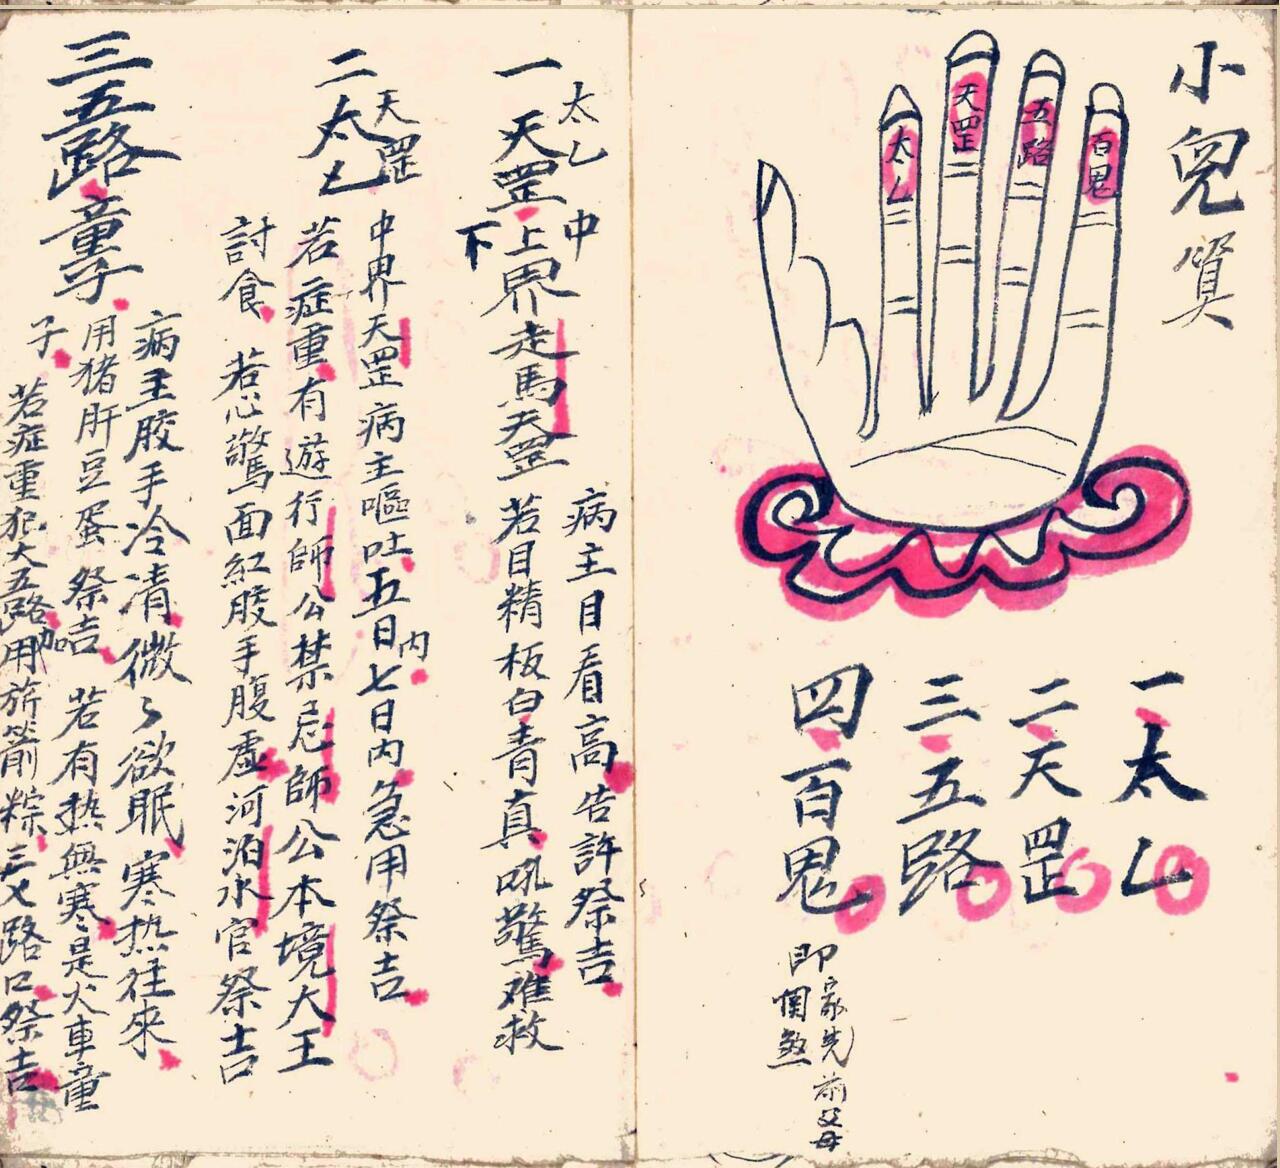 小兒筭
太乙
天罡
五路
百鬼
一太乙
二天罡
三五路
四百鬼
即家先前父母
関煞
太乙
一天罡
中
上界走馬天罡
下
病主目看高告許祭吉
若目精板白青真吼驚难救
天罡
二太乜
中界天罡病主嘔吐五日内七日内急用祭吉
若症重有遊行師公禁忌師公本境大王
討食惹心驚面紅股手腹虛河泊水官祭吉
三五路童子
病主胶手冷清微々欲眠寒热往來
用猪肝豆蛋祭吉若有热無寒是火車童
子若症重犯大五路加用旂箭粽三乂路口祭吉